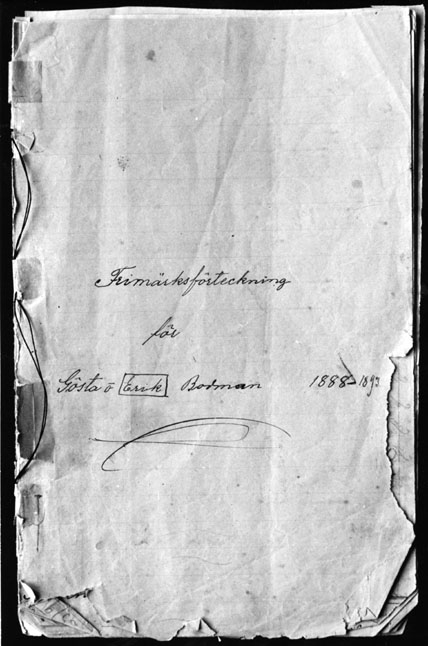 Frimärksförteckning
för
Gösta o Erik Bodman 1888-1893